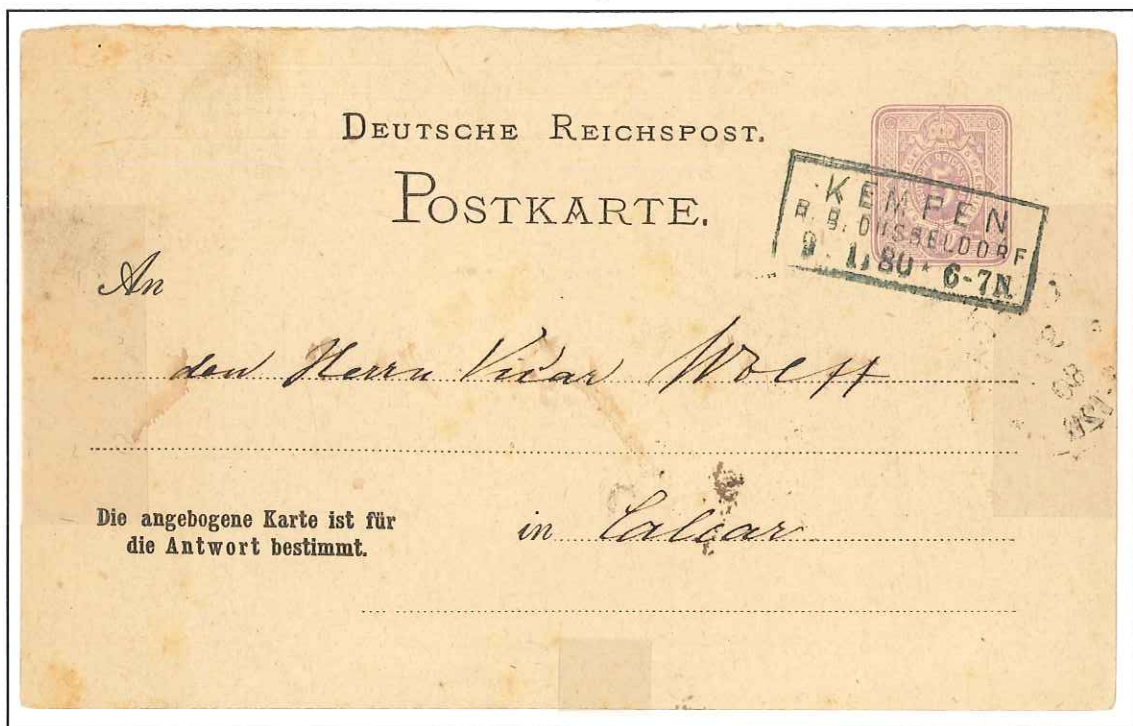 DEUTSCHE REICHSPOST.
POSTKARTE.
KEMPEN
R. B. DUSSELDORF
9. 1. 80 * 6-7N.
An
den Herrn Vicar Wolff
Die angebogene Karte ist für
die Antwort bestimmt.
in Calcar